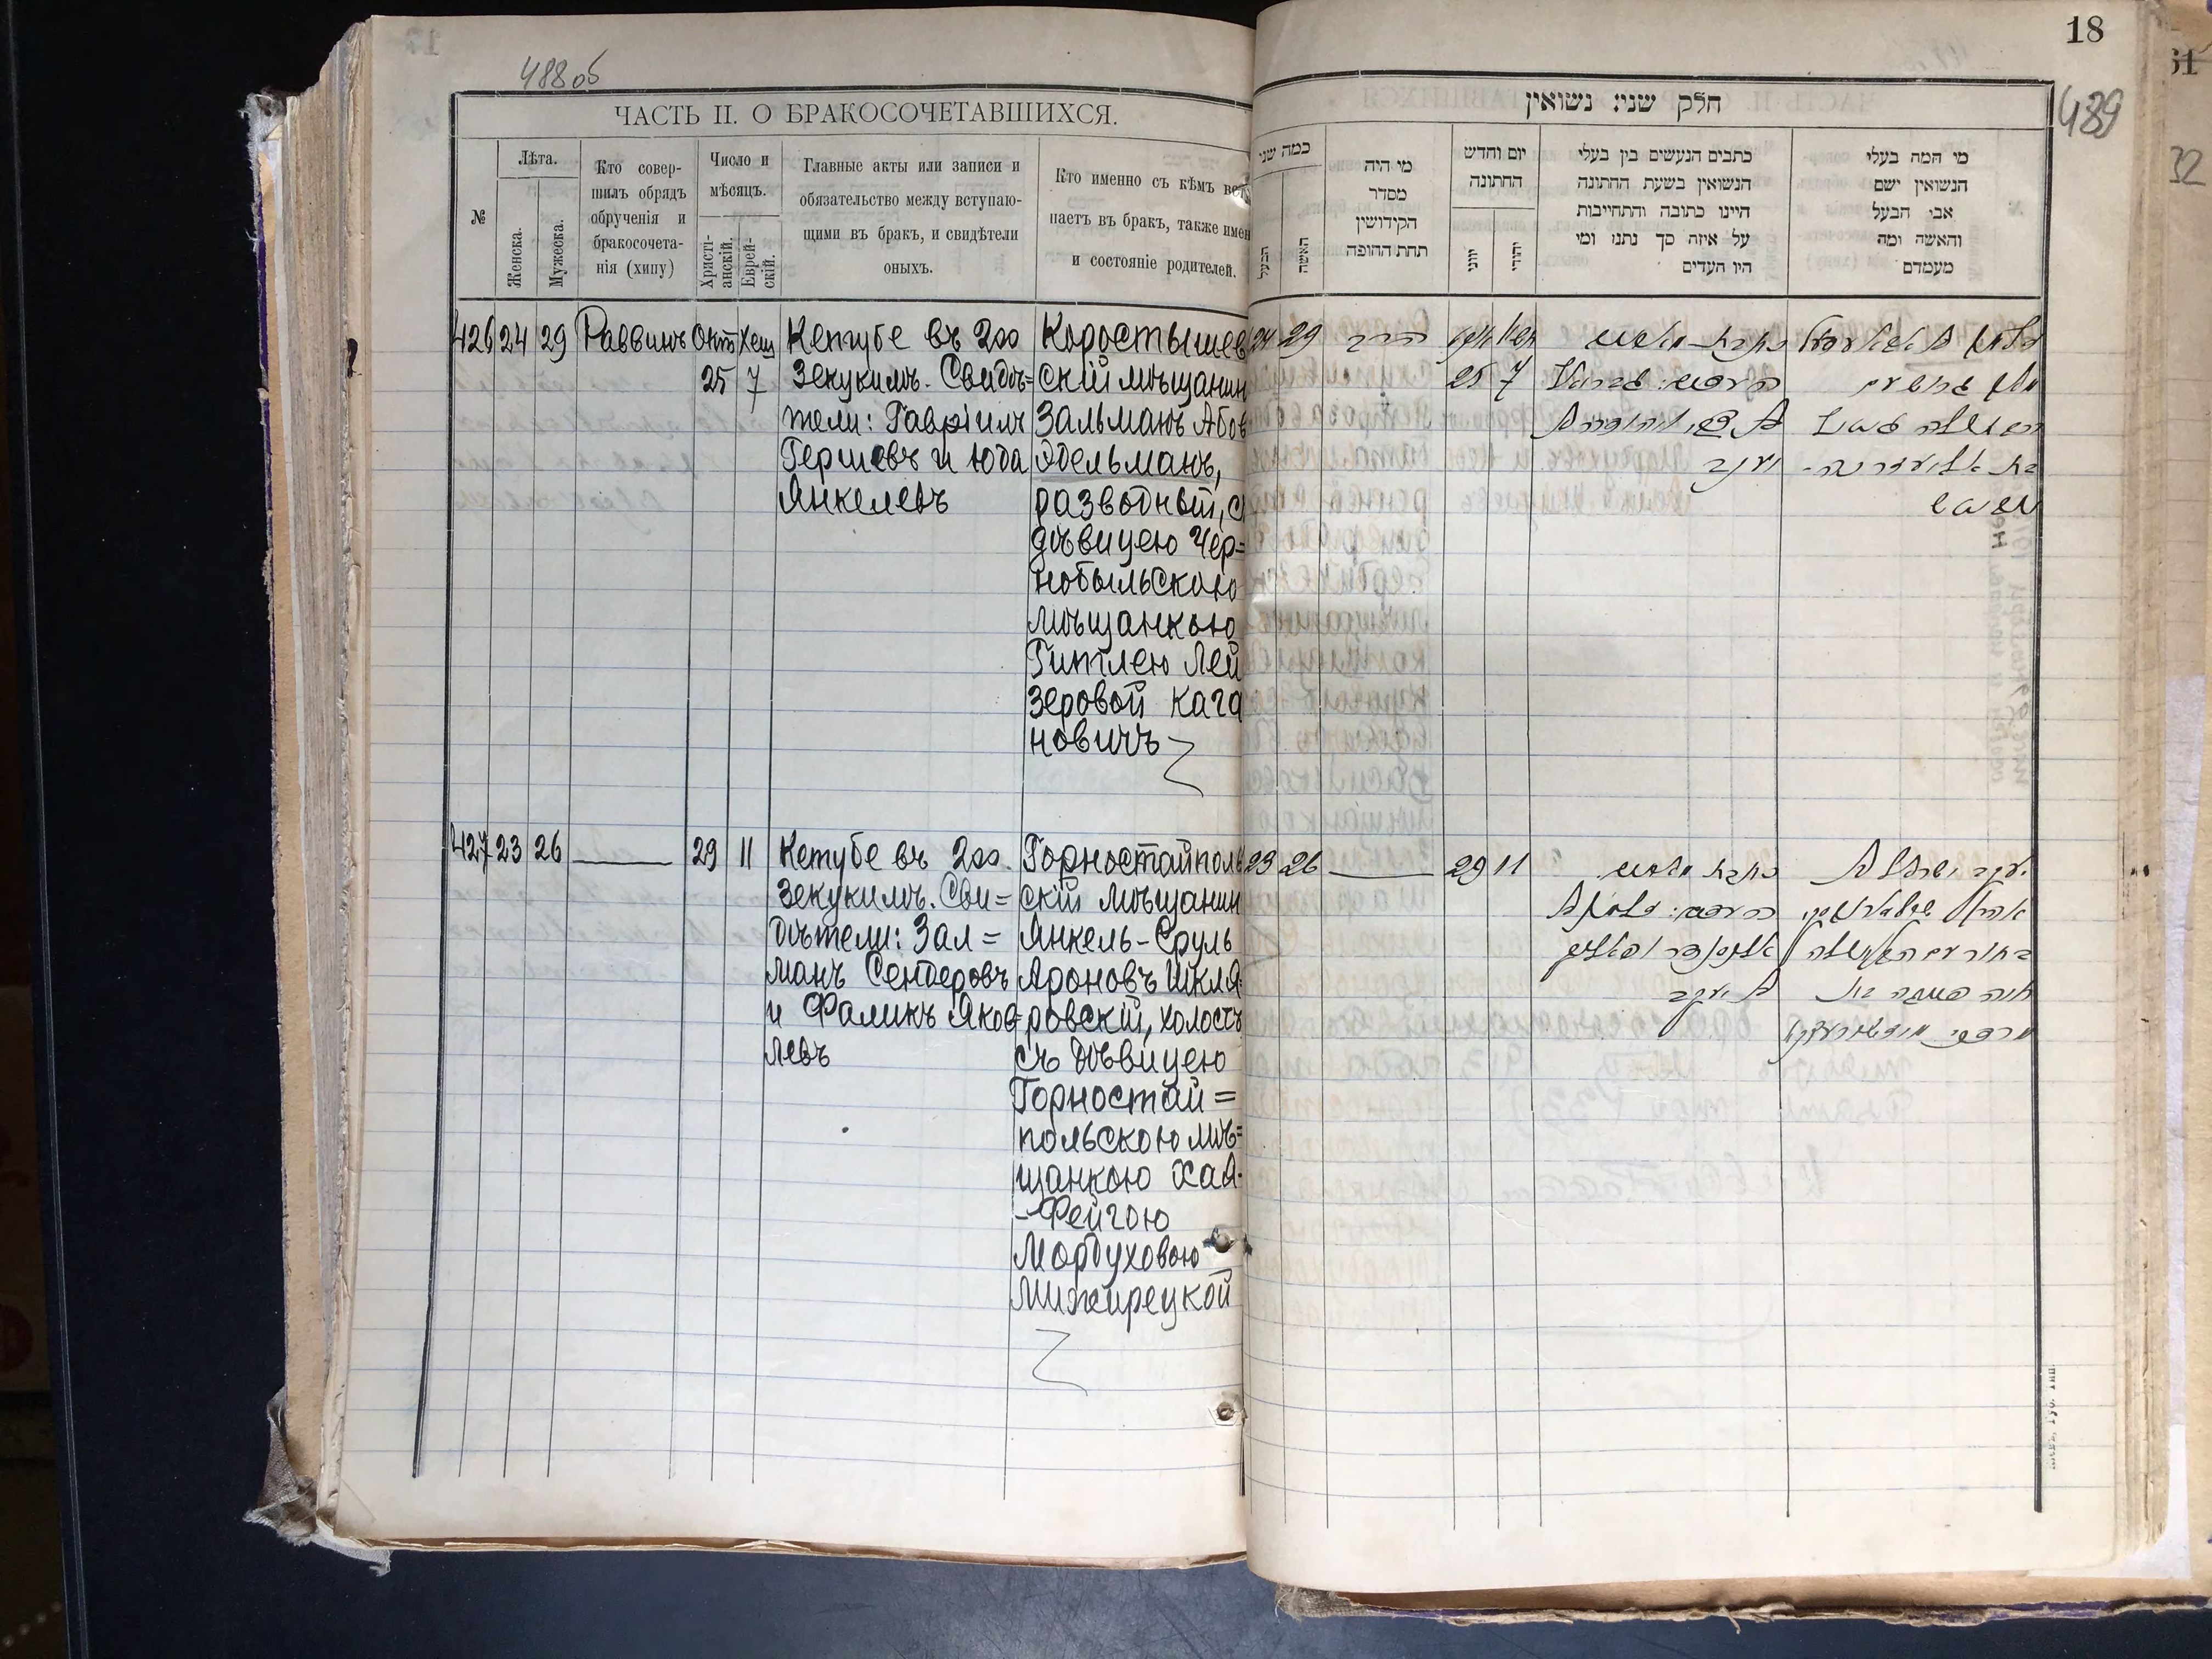 488 об
ЧАСТЬ II. О БРАКОСОЧЕТАВШИХСЯ.
№
Лѣта.
Женска.
Мужеска.
Кто совер-
шилъ обрядъ
обрученія и
бракосочета-
нія (хипу)
Число и
мѣсяцъ.
Христі-
анскій.
Еврей-
скій.
Главные акты или записи и
обязательство между вступаю-
щими въ бракъ, и свидѣтели
оныхъ.
Кто именно съ кѣмъ всту
паетъ въ бракъ, также имен
и состояніе родителей.
426 24 29 Раввинъ Окт Хеш
25 7
Кетубе въ 200
Зекукимъ. Свидѣ=
тели: Гавріилъ
Гершевъ и Юда
Янкелевъ
Коростышев
скій мѣщанин
Зальманъ Абов
Эдельманъ,
разводный, с
дѣвицею Чер=
нобыльскою
мѣщанкою
Гитлею Лей
зеровой Кага
новичъ
427 23 26 29 11
Кетубе въ 200.
Зекукимъ. Сви=
дѣтели: Зал=
манъ Сендеровъ
и Фаликъ Янке=
левъ
Горностайполь
скій мѣщанин
Янкель-Сруль
Ароновъ Шкля
ровскій, холостъ
съ дѣвицею
Горностай=
польскою мѣ=
щанкою Хая-
-Фейгою
Мордуховою
Мижирецкой
18
489
חלק שני: נשואין
כמה שני
הבעל
האשה
מי היה
מסדר
הקידושין
תחת החופה
יום וחדש
החתונה
יווני
יהודי
כתבים הנעשים בין בעלי
הנשואין בשעת החתונה
היינו כתובה והתחייבות
על איזה סך נתנו ומי
היו העדים
מי המה בעלי
הנשואין ושם
אבי הבעל
והאשה ומה
מעמדם
24 29 הרב
25 7
כתובה מאתים
העדים: גבריאל
ב צבי ויהודה ב
יעקב
23 26 29 11
כתובה מאתים
העדים: זלמן ב
ב יעקב
יעקב ישראל ב
אהרן שקליארעווסקי
בחור עם הבתולה
חיה פייגה בת
מרדכי
31
32